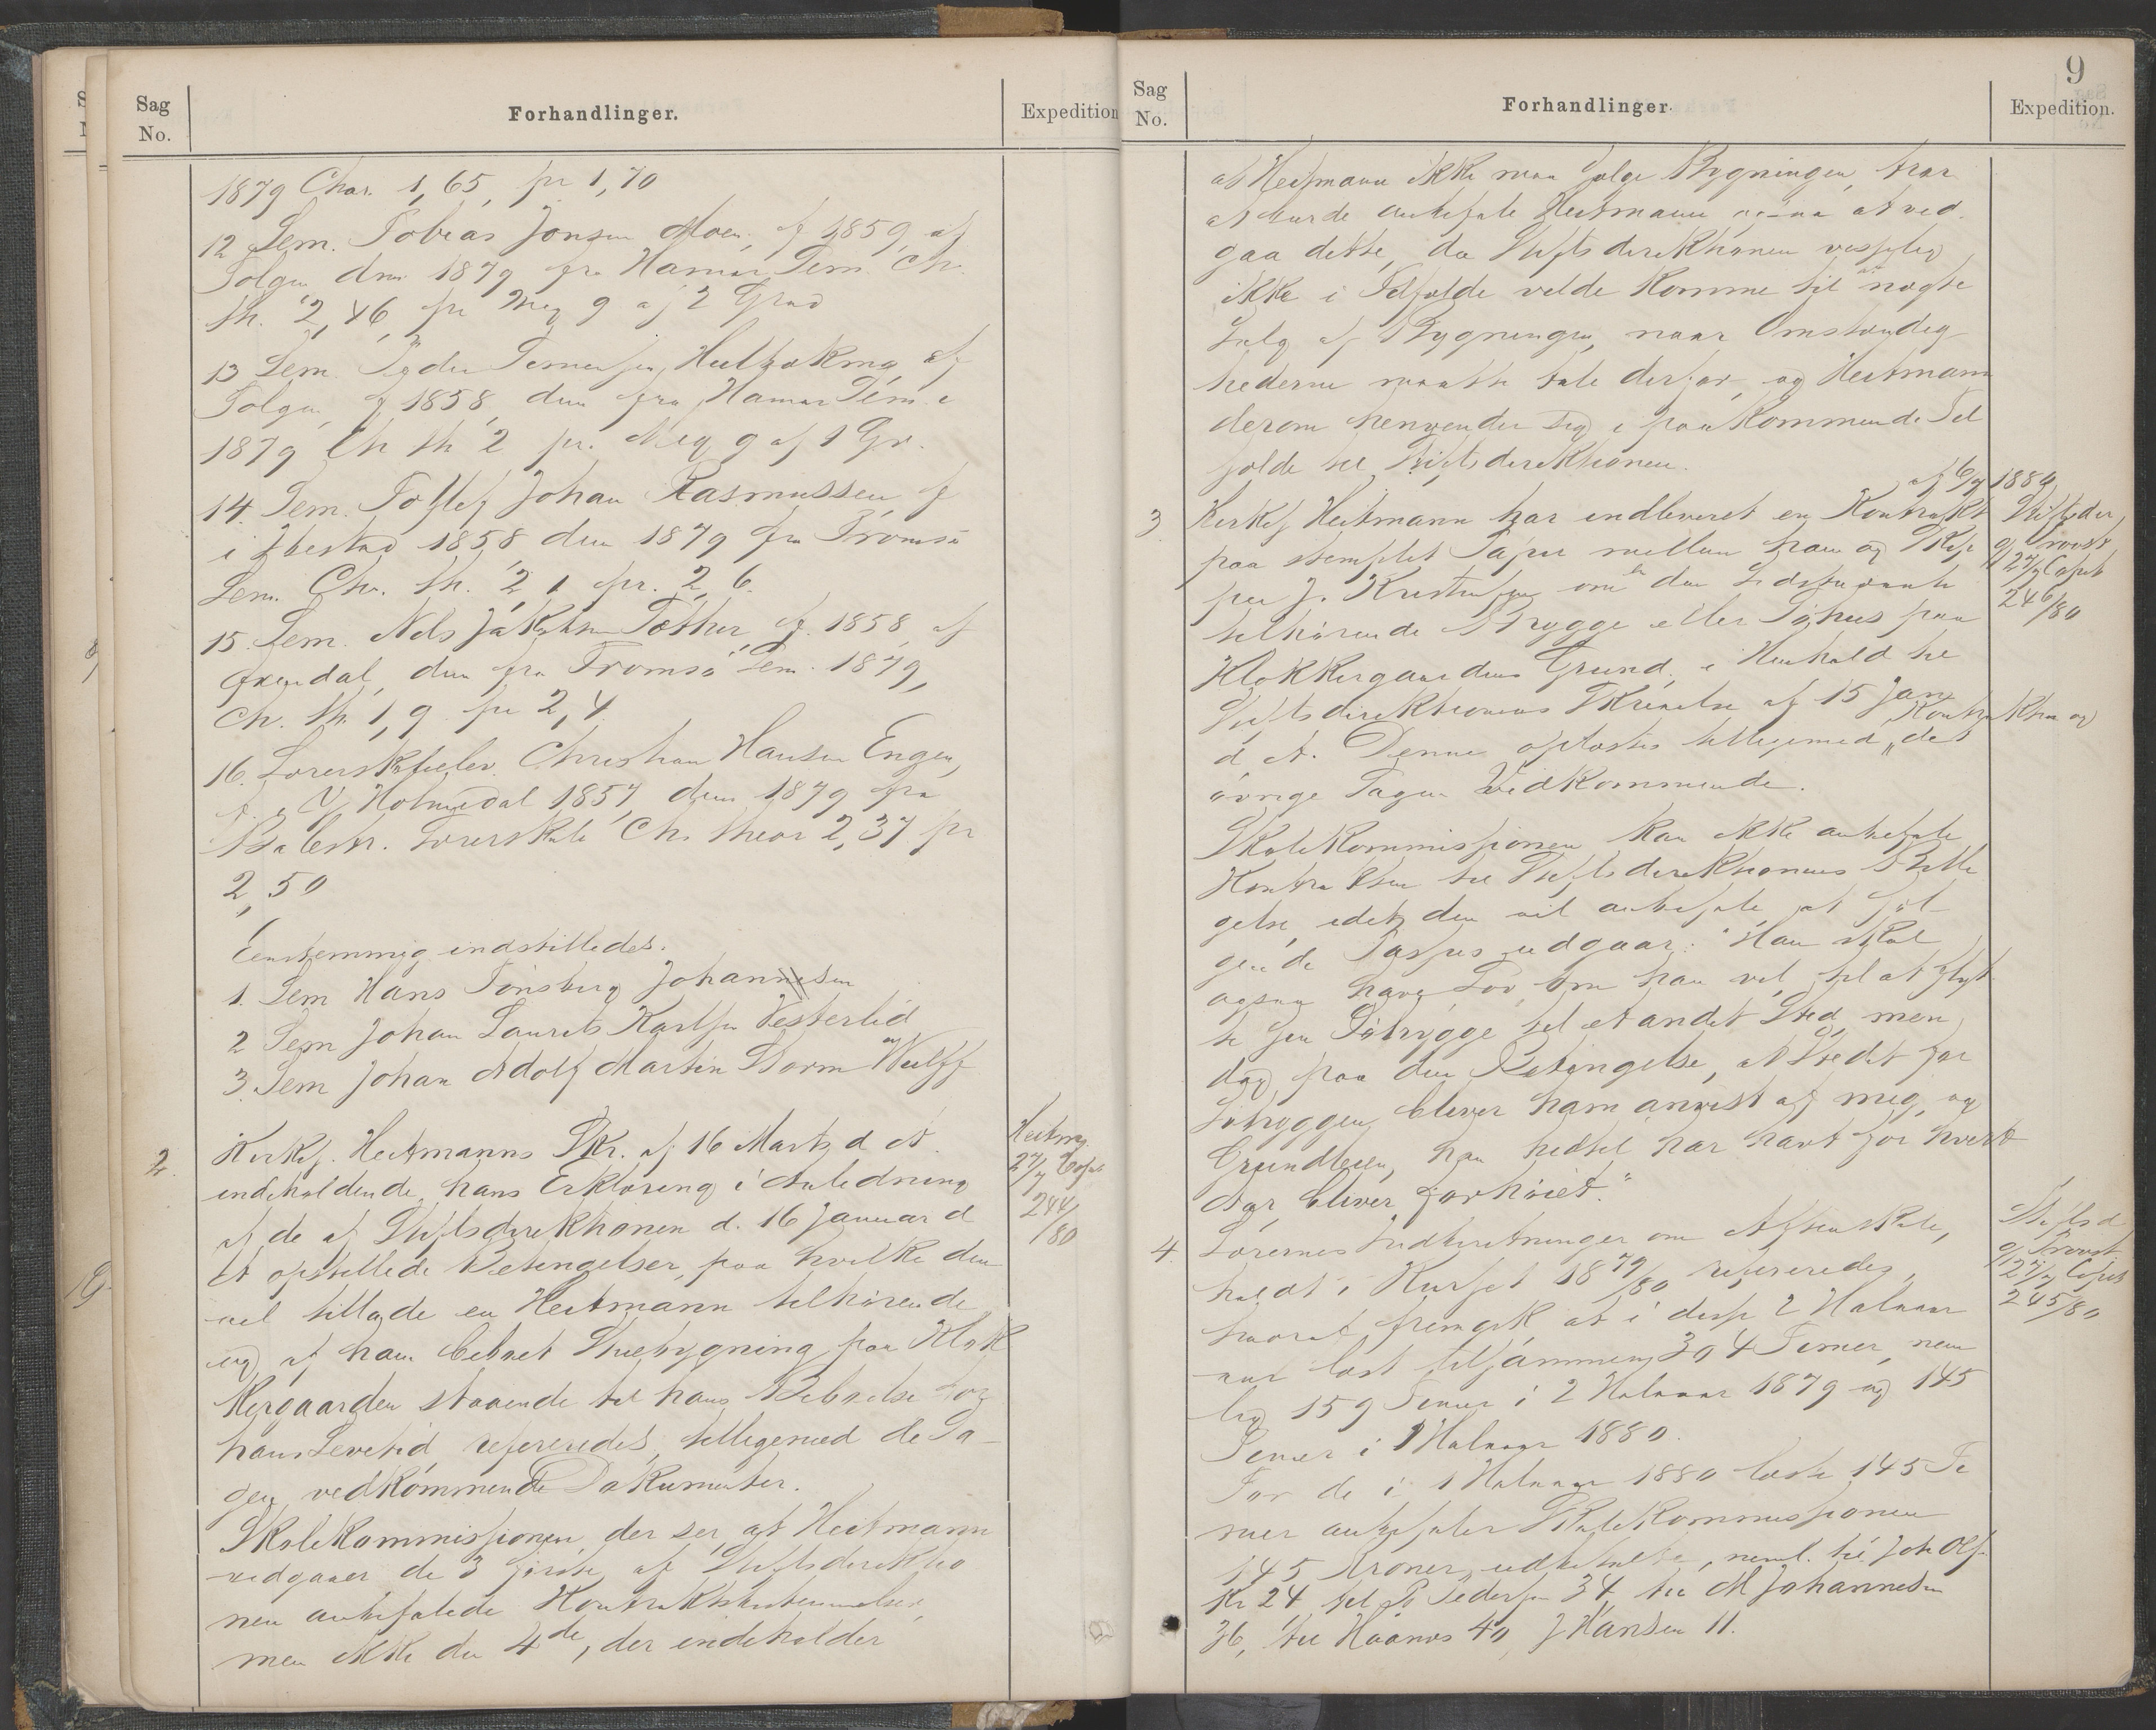 Sag
No.
Forhandlinger.
Expedition
1879 Char. 1,65, pr 1,70
12 Sem. Tobias Jonsen Moen, f 1859, af
Tolgen dim 1879 fra Hamar Sem. Ch.
th. 2,46, pr Meg g af 2 Grad
13 Sem. Peder Semensen Hulbækmo af
Tolgen, f 1858, dim fra Hamar Sem. i
1879 Ch th 2 pr. Meg g af 1 Gr.
14. Sem. Tollef Johan Rasmussen f
i Ibestad 1858 dim 1879 fra Tromsø
Sem. Chr. th. 2,1 pr. 2,6.
15. Sem. Nils Jakobsen f. 1858, af
dim fra Tromsø Sem. 1879,
Ch. th 1,9 pr 2,4.
16. Lærerskoleelev Christian Hansen Engen,
f. i Y Holmedal 1857, dim 1879 fra
Balestr. Lærerskole Ch. theor 2,37 pr
2,50
Eenstemmig indstilledes.
1. Sem Hans Tønsberg Johannesen
2 Sem Johan Laurits Karlsen Vesterlid
3. Sem Johan Adolf Martin Storm Wulff
2. Kirkes. Heitmanns Skr. af 16 Marts d At
indeholdende hans Erklæring i Anledning
af de af Stiftsdirektionen d. 16 Januar d
At opstillede Betingelser, paa hvilke den
vil tillade en Heitmann tilhørende
og af ham beboet Stuebygning paa Klok
kergaarden staaende til hans Beboelse for
hans Levetid, refereredes, tilligemed de Sa-
gen vedkommende Dokumenter.
Skolekommissionen, der ser, at Heitmann
vedgaaer de 3 første af Stiftsdirektio
nen anbefalede Kontraktsbestemmelser,
men ikke den 4de, der indeholder
Heitm.
27/7 Copib
244/
/80
9
Sag
No.
Forhandlinger.
Expedition.
at Heitmann ikke maa sælge Bygningen, tror
at burde anbefale Heitmann ogsaa at ved-
gaa dette, da Stiftsdirektionen vistselig
ikke i Tilfælde vilde komme til at nægte
Salg af Bygningen, naar Omstændig-
hederne maatte tale derfor, og Heitmann
derom henvender sig i paakommende Til
fælde til Stiftsdirektionen.
3 Kirkes. Heitmann har indleveret en Kontrakt af 6/7 1880
paa stemplet Papir mellem ham og
per J. Kristensen om en den Sidstnævnte
tilhørende Brygge eller Søhus paa
Klokkergaardens Grund, i Henhold til
Stiftsdirektionens Skrivelse af 15 Jan
d. A. Denne oplæstes tilligemed Kontrakten og det
øvrige Sagen Vedkommende.
Skolekommissionen kan ikke anbefale
Kontrakten til Stiftsdirektionens Billi
gelse, idet den vil anbefale, at føl-
gende Passus udgaar: "Han skal
ogsaa have Lov, om han vil, til at flyt
te sin Søbrygge til et andet Sted, men
dog paa den Betingelse, at Stedet for
Søbryggen bliver ham anvist af mig, og
Grundleien, han hidtil har havt for hvert
Aar bliver forhøiet."
Stiftsdir
g Provst
27/7 Copib
246/80
4. Lærernes Indberetninger om Aftenskole,
holdt i Kurset 1879/80 refereredes,
hvoraf fremgik at i disse 2 Halvaar
var læst tilsammen 304 Timer, nem
lig 159 Timer i 2 Halvaar 1879 og 145
Timer i 1 Halvaar 1880.
For de i 1 Halvaar 1880 læste 145 Ti
mer anbefaler Skolekommissionen
145 Kroner udbetalte, neml. til Joh Ols.
Kr 24 til P. Pedersen 34, til M Johannesen
36, til Haanes 40, J Hansen 11.
Stiftsd
g Provst.
27/7 Copib
245/80